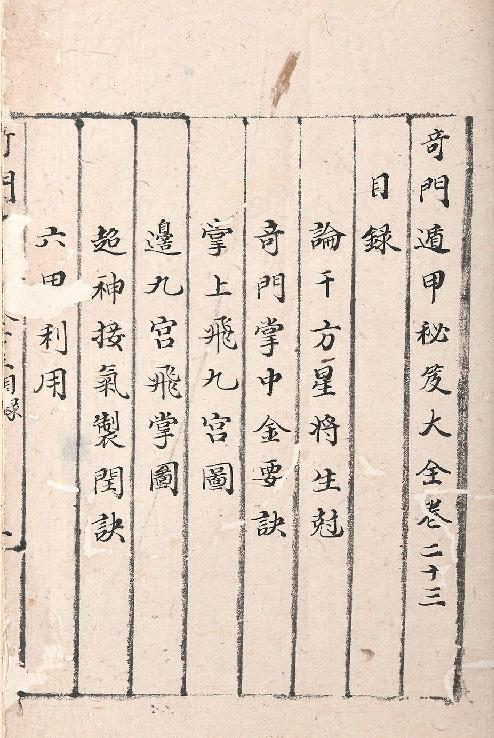 奇門遁甲秘笈大全卷二十三
目錄
論千方星将生尅
奇門掌中金要訣
掌上飛九宮圖
邊九宮飛掌圖
超神接氣製閏訣
六甲利用
門
目録